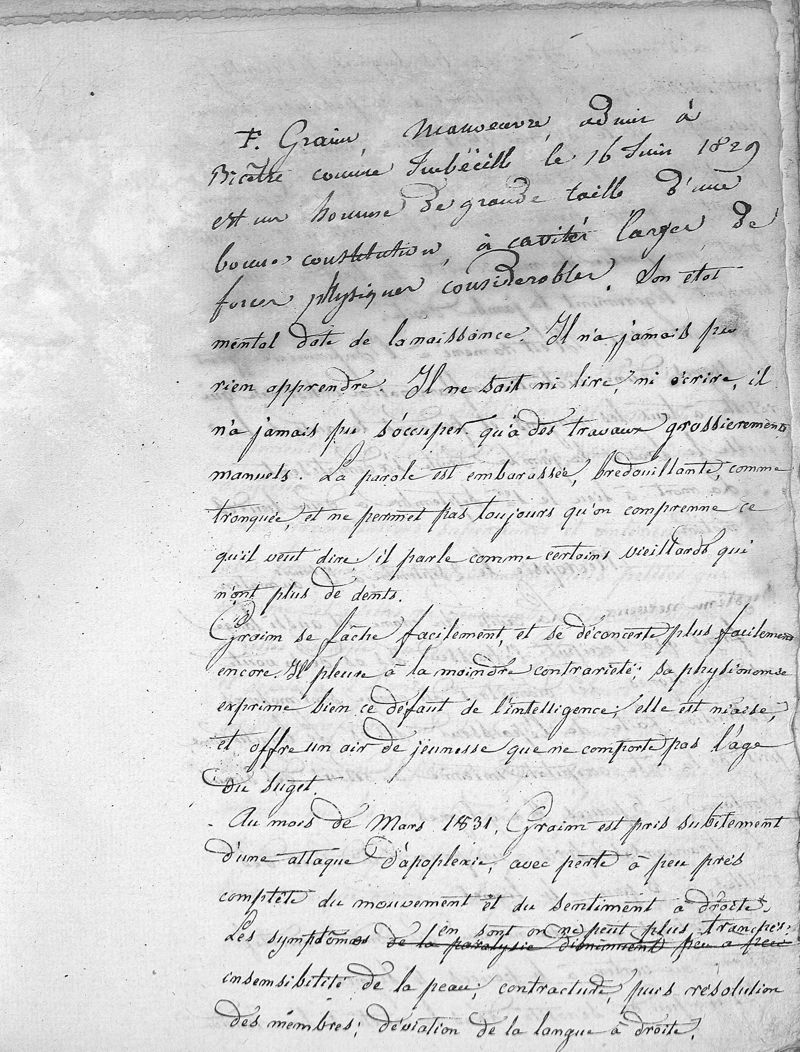 F. Graim, Manoeuvre admis à
Bicêtre comme Imbécille le 16 Juin 1829
est un homme de grande taille d'une
bonne constitution, à cavités larges de
forces physiques considerables. Son état
mental date de la naissance. Il n'a jamais pu
rien apprendre. Il ne sait ni lire, ni écrire, il
n'a jamais pu s'occuper qu'à des travaux grossierement
manuels. La parole est embarassée, bredouillante, comme
tronquée, et ne permet pas toujours qu'on comprenne ce
qu'il veut dire, il parle comme certains vieillards qui
n'ont plus de dents.
Graim se fâche facilement, et se déconcerte plus facilement
encore. Il pleure à la moindre contrariété; sa physionomie
exprime bien ce défaut de l'intelligence; elle est niaise,
et offre un air de jeunesse que ne comporte pas l'âge
du suget.
- Au mois de Mars 1831, Graim est pris subitement
d'une attaque d'apoplexie, avec perte à peu près
complête du mouvement et du sentiment à droite.
en sont on ne peut plus tranchés;
Les symptômes de la paralysie diminuent peu a peu
insensibilité de la peau, contracture, puis résolution
des membres; déviation de la langue à droite.